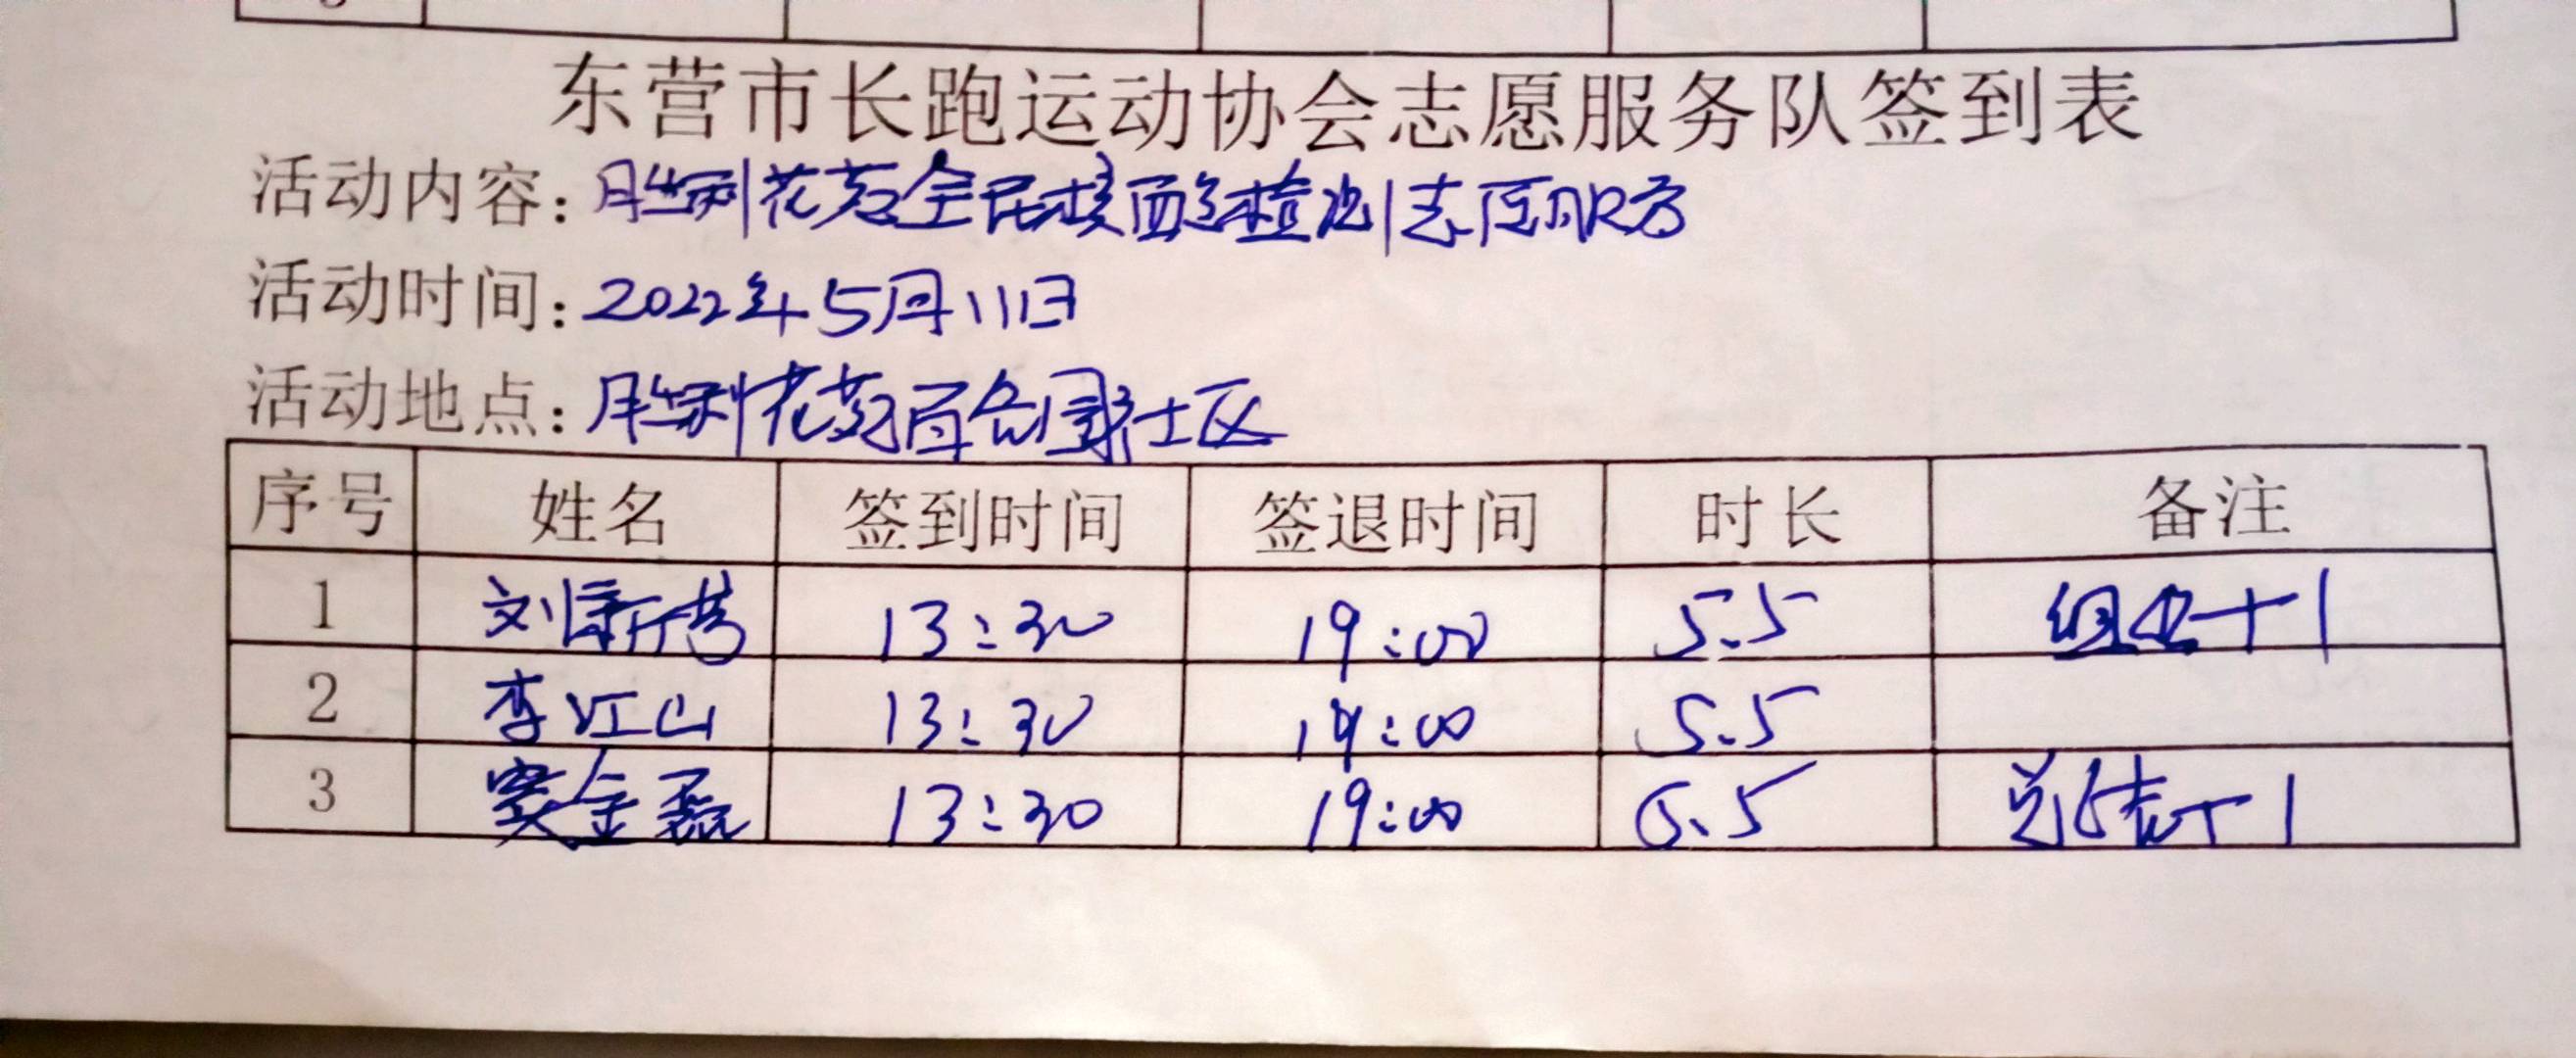 东营市长跑运动协会志愿服务队签到表
活动内容：胜利花苑全民核酸检测志愿服务
活动时间：2022年5月11日
活动地点：胜利花苑百合园社区
序号 姓名 签到时间 签退时间 时长 备注
1 刘新芳 13:30 19:00 5.5 组织+1
2 李江山 13:30 19:00 5.5
3 窦金磊 13:30 19:00 5.5 总结+1